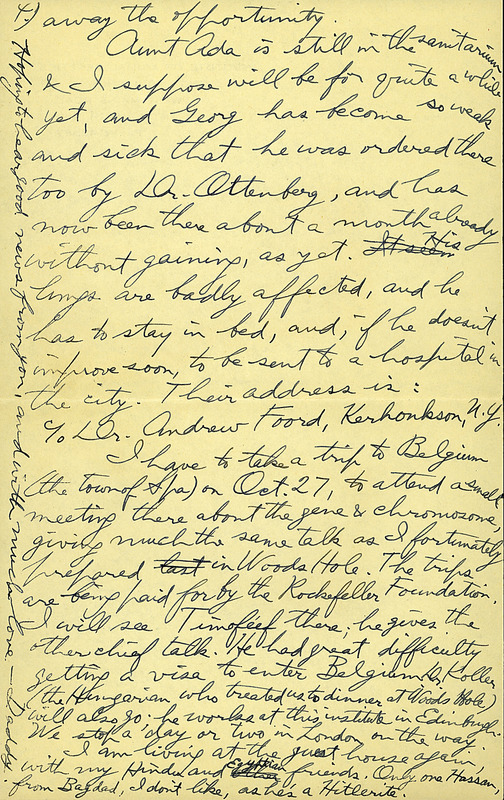 4.) away the opportunity.
Aunt Ada is still in the sanitarium
& I suppose will be for quite a while
yet, and Georg has become so weak
and sick that he was ordered there
too by Dr. Ottenberg, and has
now been there about a month already
without gaining, as yet. It seem His
lungs are badly affected, and he
has to stay in bed, and, if he doesn't
improve soon, to be sent to a hospital in
the city. Their address is:
c/o Dr. Andrew Foord, Kerhonkson, N.Y.
I have to take a trip to Belgium
(the town of Spa) on Oct. 27, to attend a small
meeting there about the gene & chromosome,
giving much the same talk as I fortunately
prepared last in Woods Hole. The trips
are being paid for by the Rockefeller Foundation
I will see Timofeef there; he gives the
other chief talk. He had great difficulty
getting a vise to enter Belgium. Koller
(the Hungarian who treated us to dinner at Woods Hole)
will also go: he works at this institute in Edinburgh.
We stop a day or two in London on the way.
I am living at the guest house again
with my Hindu and Egyptian friends. Only one Hassan
from Bagdad, I don't like, as he's a Hitlerite.
Hoping to hear good news from you, and with much love. — Daddy.